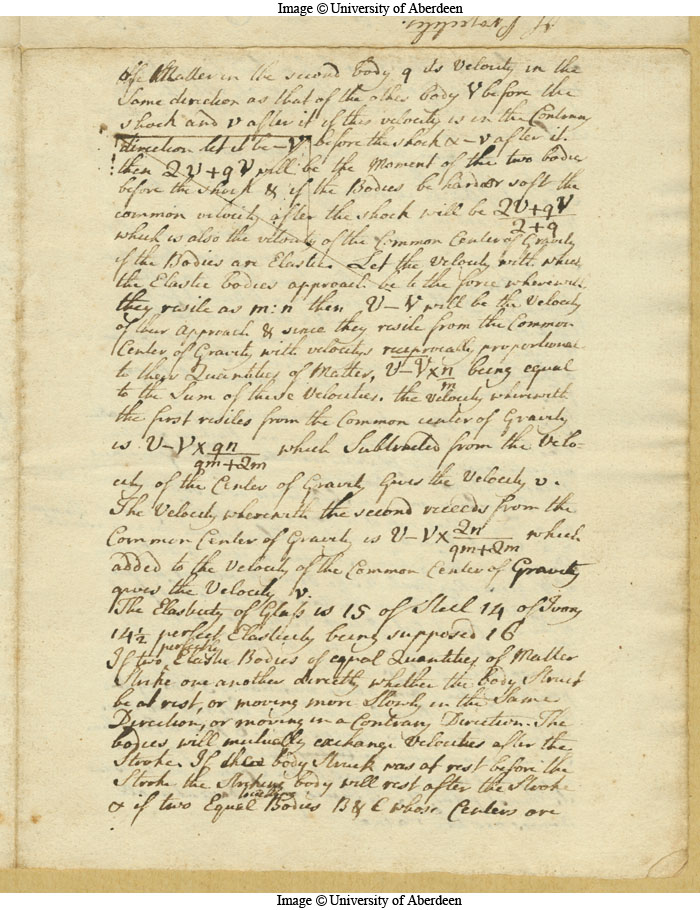 Image © University of Aberdeen
of Matter in the second body q its Velocity in the
Same direction as that of the other body V before the
shock and v after it if this velocity is in the Contrary
direction let it be – V before the shock & – v after it.
then QU + qV will be the Moment of the two bodies
before the shock & if the Bodies be hard or soft the
common velocity after the shock will be QU+qV / Q+q
which is also the velocity of the Common Center of Gravity
if the Bodies are Elastic. Let the Velocity with which
the Elastic bodies approach be to the force wherewith
they resile as m : n then U – V will be the Velocity
of their approach & since they resile from the Common
Center of Gravity with velocitys reciprocally proportional
to their Quantities of Matter, U – V × n/m being equal
to the Sum of these Velocities. the Velocity wherewith
the first resiles from the Common center of Gravity
is U – V × qn / qm + Qm which Subtracted from the Velo-
city of the Center of Gravity gives the Velocity v.
The Velocity wherewith the second receeds from the
Common Center of Gravity is U – V × Qn / qm + Qm which
added to the Velocity of the Common Center of Gravity
gives the Velocity v.
The Elasticity of Glass is 15 of Steel 14 of Ivory
14½ perfect Elasticity being supposed 16
If two perfectly Elastic Bodies of equal Quantities of Matter
Strike one another directly whether the body Struck
be at rest, or moving more Slowly in the Same
Direction, or moving in a Contrary Direction. The
bodies will mutually exchange Velocities after the
Stroke. If the body Struck was at rest before the
Stroke the Striking body will rest after the Stroke
& if two Equal Bodies B & C whose Centers are
Image © University of Aberdeen